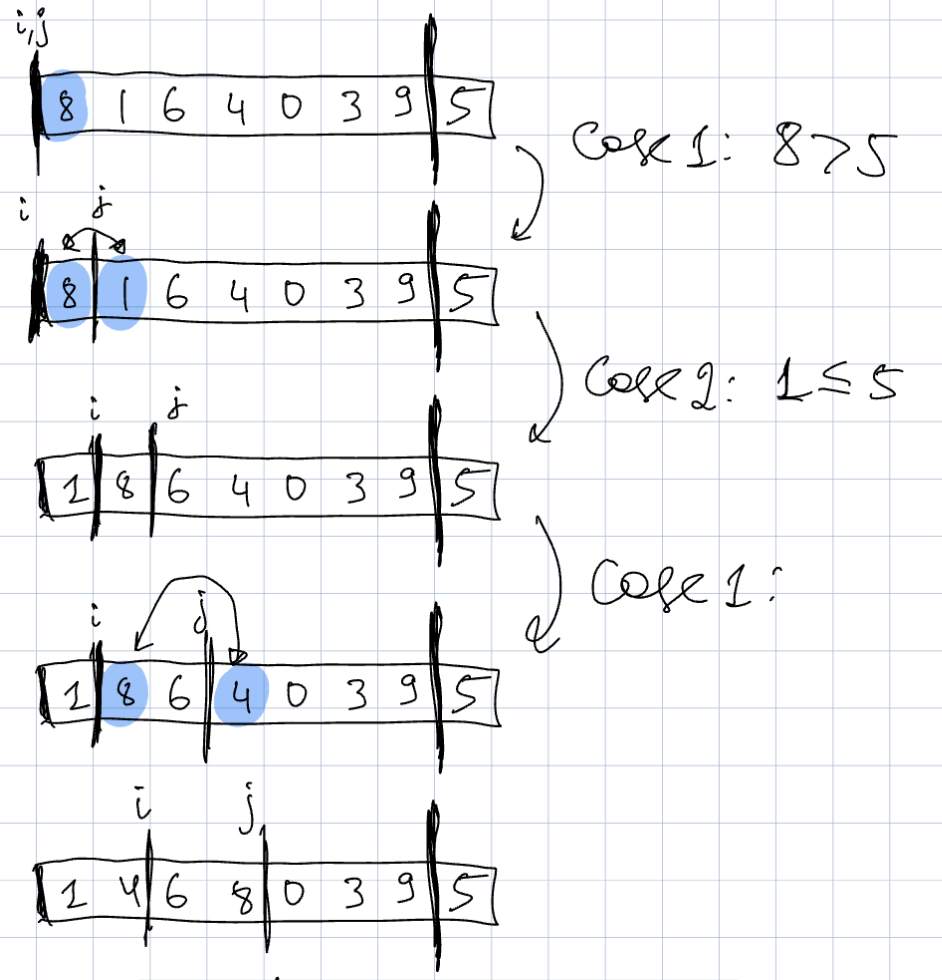 i,j
8 1 6 4 0 3 9 5
Case 1: 8>5
i j
8 1 6 4 0 3 9 5
Case 2: 1≤5
i j
1 8 6 4 0 3 9 5
Case 1:
i j
1 8 6 4 0 3 9 5
i j
1 4 6 8 0 3 9 5